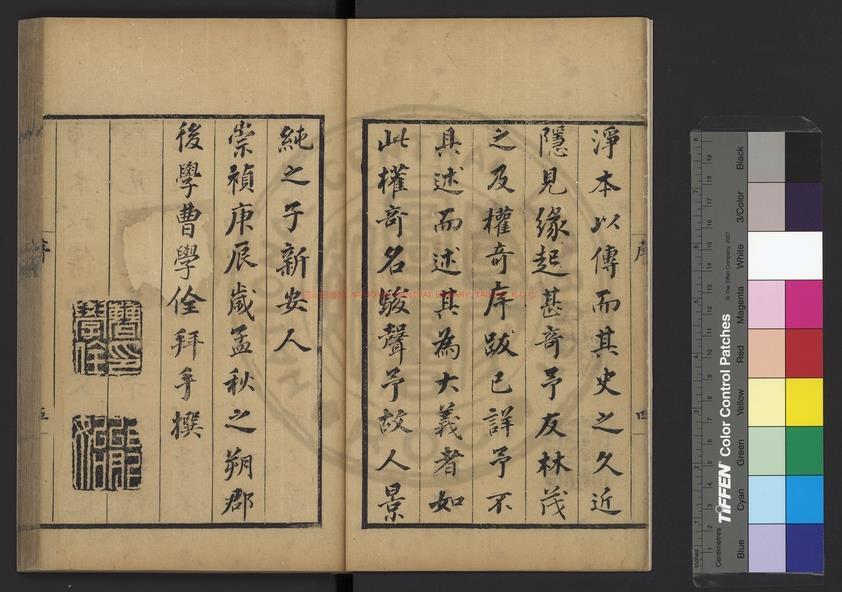 淨本以傳而其史之久近
隱見緣起甚奇予友林茂
之及權奇序跋已詳予不
具述而述其為大義者如
此權奇名駿聲予故人景
純之子新安人
崇禎庚辰歲孟秋之朔郡
後學曹學佺拜手撰
四
五
TIFFEN Color Control Patches
© The Tiffen Company, 2007
Black
3/Color
White
Magenta
Red
Yellow
Green
Cyan
Blue
Centimetres
Inches